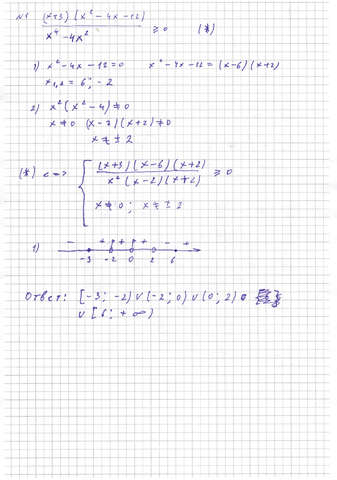 N1 (x+3)(x² - 4x - 12) / (x⁴ - 4x²) ≥ 0 (*)
1) x² - 4x - 12 = 0 x² - 4x - 12 = (x-6)(x+2)
x₁,₂ = 6; -2
2) x²(x² - 4) ≠ 0
x ≠ 0 (x-2)(x+2) ≠ 0
x ≠ ± 2
(*) <=> { (x+3)(x-6)(x+2) / (x²(x-2)(x+2)) ≥ 0
x ≠ 0; x ≠ ± 2
1) - + + + - +
-3 -2 0 2 6
Ответ: [-3; -2) ∪ (-2; 0) ∪ (0; 2)
∪ [6; +∞)